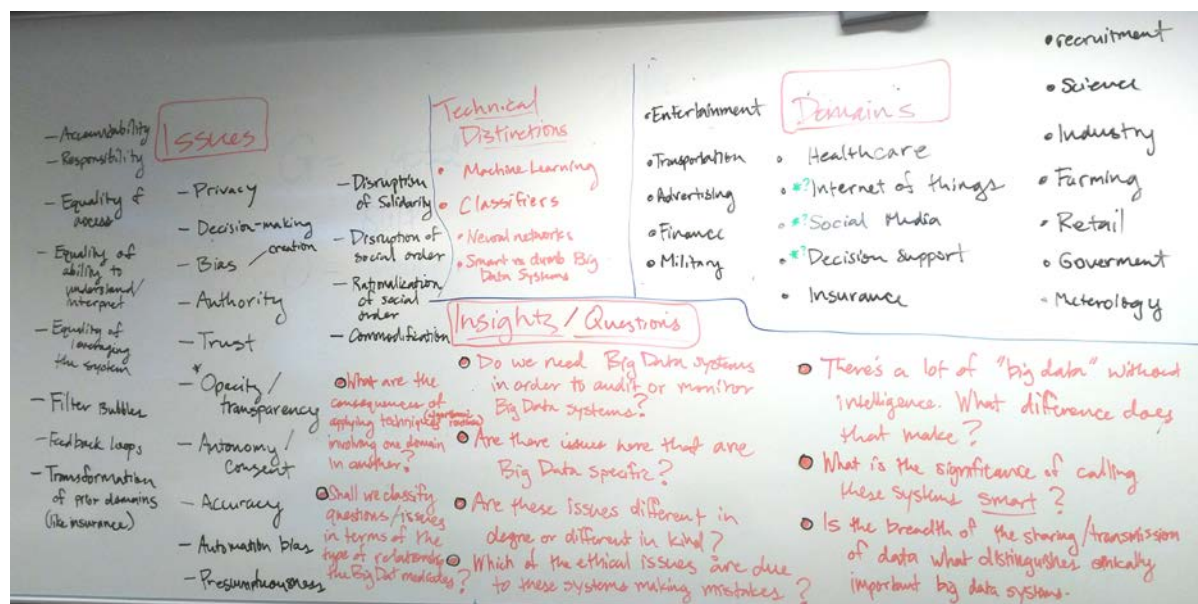 Issues
– Accountability
– Responsibility
– Equality of
access
– Equality of
ability to
understand/
interpret
– Equality of
leveraging
the system
– Filter Bubbles
– Feedback loops
– Transformation
of prior domains
(like insurance)
– Privacy
– Decision-making
creation
– Bias
– Authority
– Trust
* – Opacity/
transparency
– Autonomy/
Consent
– Accuracy
– Automation bias
– Presumptuousness
– Disruption
of Solidarity
– Disruption of
social order
– Rationalization
of social
order
– Commodification
Technical
Distinctions
• Machine Learning
• Classifiers
• Neural networks
• Smart vs dumb Big
Data Systems
Domains
• Entertainment
• Transportation
• Advertising
• Finance
• Military
• Healthcare
• *?Internet of things
• *?Social Media
• *?Decision support
• Insurance
• recruitment
• Science
• Industry
• Farming
• Retail
• Goverment
• Meterology
Insights/Questions
• What are the
consequences of
applying techniques
involving one domain
in another?
• Shall we classify
questions/issues
in terms of the
type of relationship
the Big Dat mediates?
• Do we need Big Data systems
in order to audit or monitor
Big Data systems?
• Are there issues here that are
Big Data specific?
• Are these issues different in
degree or different in kind?
• Which of the ethical issues are due
to these systems making mistakes?
• There's a lot of "big data" without
intelligence. What difference does
that make?
• What is the significance of calling
these systems smart?
• Is the breadth of the sharing/transmission
of data what distinguishes ethically
important big data systems.